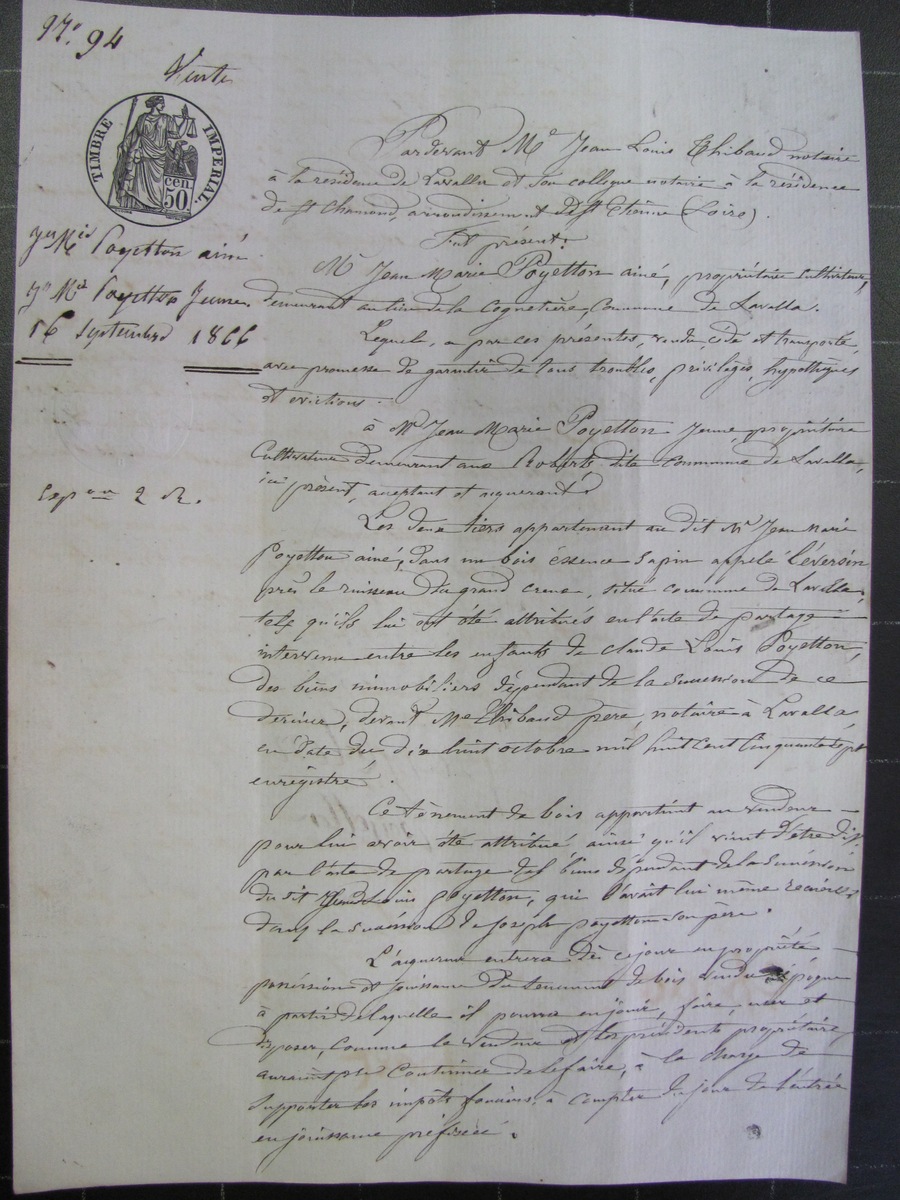 N.° 94
Vente
TIMBRE IMPERIAL
50 cen
Jn Mie Poyetton ainé
Jn Mie Poyetton Jeune
16 Septembre 1866
Exp on 2 R.
Pardevant Me Jean Louis Thibaud notaire
à la résidence de Lavalla et son collègue notaire à la résidence
de St Chamond, arrondissement de St Etienne (Loire).
Fut présent:
Mr Jean Marie Poyetton ainé, propriétaire cultivateur,
demeurant au lieu de la Cognetière, Commune de Lavalla.
Lequel, a par ces présentes, vendu cédé et transporté,
avec promesse de garantir de tous troubles, privilèges, hypothèques
et evictions.
à Mr Jean Marie Poyetton Jeune, propriétaire
Cultivateur demeurant aux Roberts dite commune de Lavalla,
ici présent, acceptant et aquerant:
Les deux tiers appartenant au dit Mr Jean Marie
Poyetton ainé, dans un bois éssence sapin appelé Léversin
près le ruisseau du grand creux, situé commune de Lavalla,
tels qu'ils lui ont été attribués en l'acte de partage
intervenu entre les enfants de claude Louis Poyetton,
des biens immobiliers dépendant de la succession de ce
dernier, devant Me Thibaud père, notaire à Lavalla,
en date du dix huit octobre mil huit cent cinquante sept
enregistré.
Ce tènement de bois appartient au vendeur
pour lui avoir été attribué ainsi qu'il vient d'être dit,
par l'acte de partage des biens dépendant de la succession
du dit Claude Louis Poyetton, qui l'avait lui même recueilli
dans la succession de Joseph poyetton son père.
L'aquereur entrera dès ce jour en propriété
possession et jouissance du tenement de bois vendu époque
à partir de laquelle il pourra en jouir, faire, user et
disposer, comme le vendeur et les précédents propriétaires
auraient pu continuer de le faire, à la charge de
supporter les impôts fonciers à compter du jour de l'entrée
en jouissance préfixée.